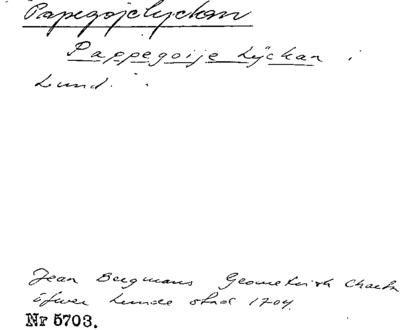 Papegojelyckan
Pappegoije Lyckan i
Lund.
Jean Bergmans Geometrisk Charta
öfwer Lunds stad 1704.
Nr 5703.